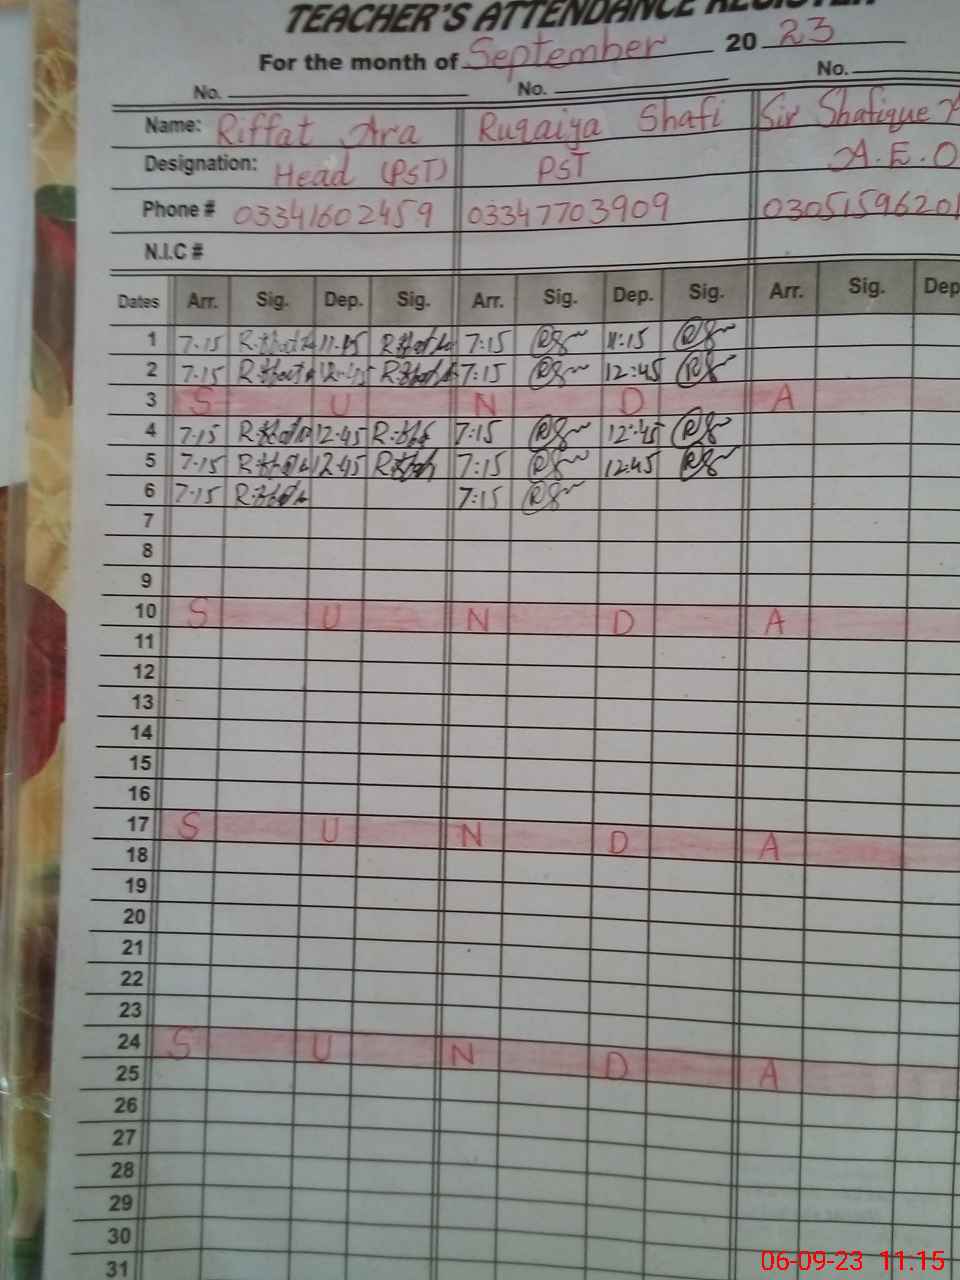 TEACHER'S ATTENDANCE REGISTER
For the month of September 20 23
No. No. No.
Name: Riffat Ara Ruqaiya Shafi Sir Shafique
Designation: Head (PST) PST A.E.O
Phone # 03341602459 03347703909 03051596201
N.I.C #
Dates Arr. Sig. Dep. Sig. Arr. Sig. Dep. Sig. Arr. Sig. Dep
1 7:15 11:15 7:15 11:15
2 7:15 12:45 7:15 12:45
3 S U N D A
4 7:15 12:45 7:15 12:45
5 7:15 12:45 7:15 12:45
6 7:15 7:15
7
8
9
10 S U N D A
11
12
13
14
15
16
17 S U N D A
18
19
20
21
22
23
24 S U N D A
25
26
27
28
29
30
31
06-09-23 11.15